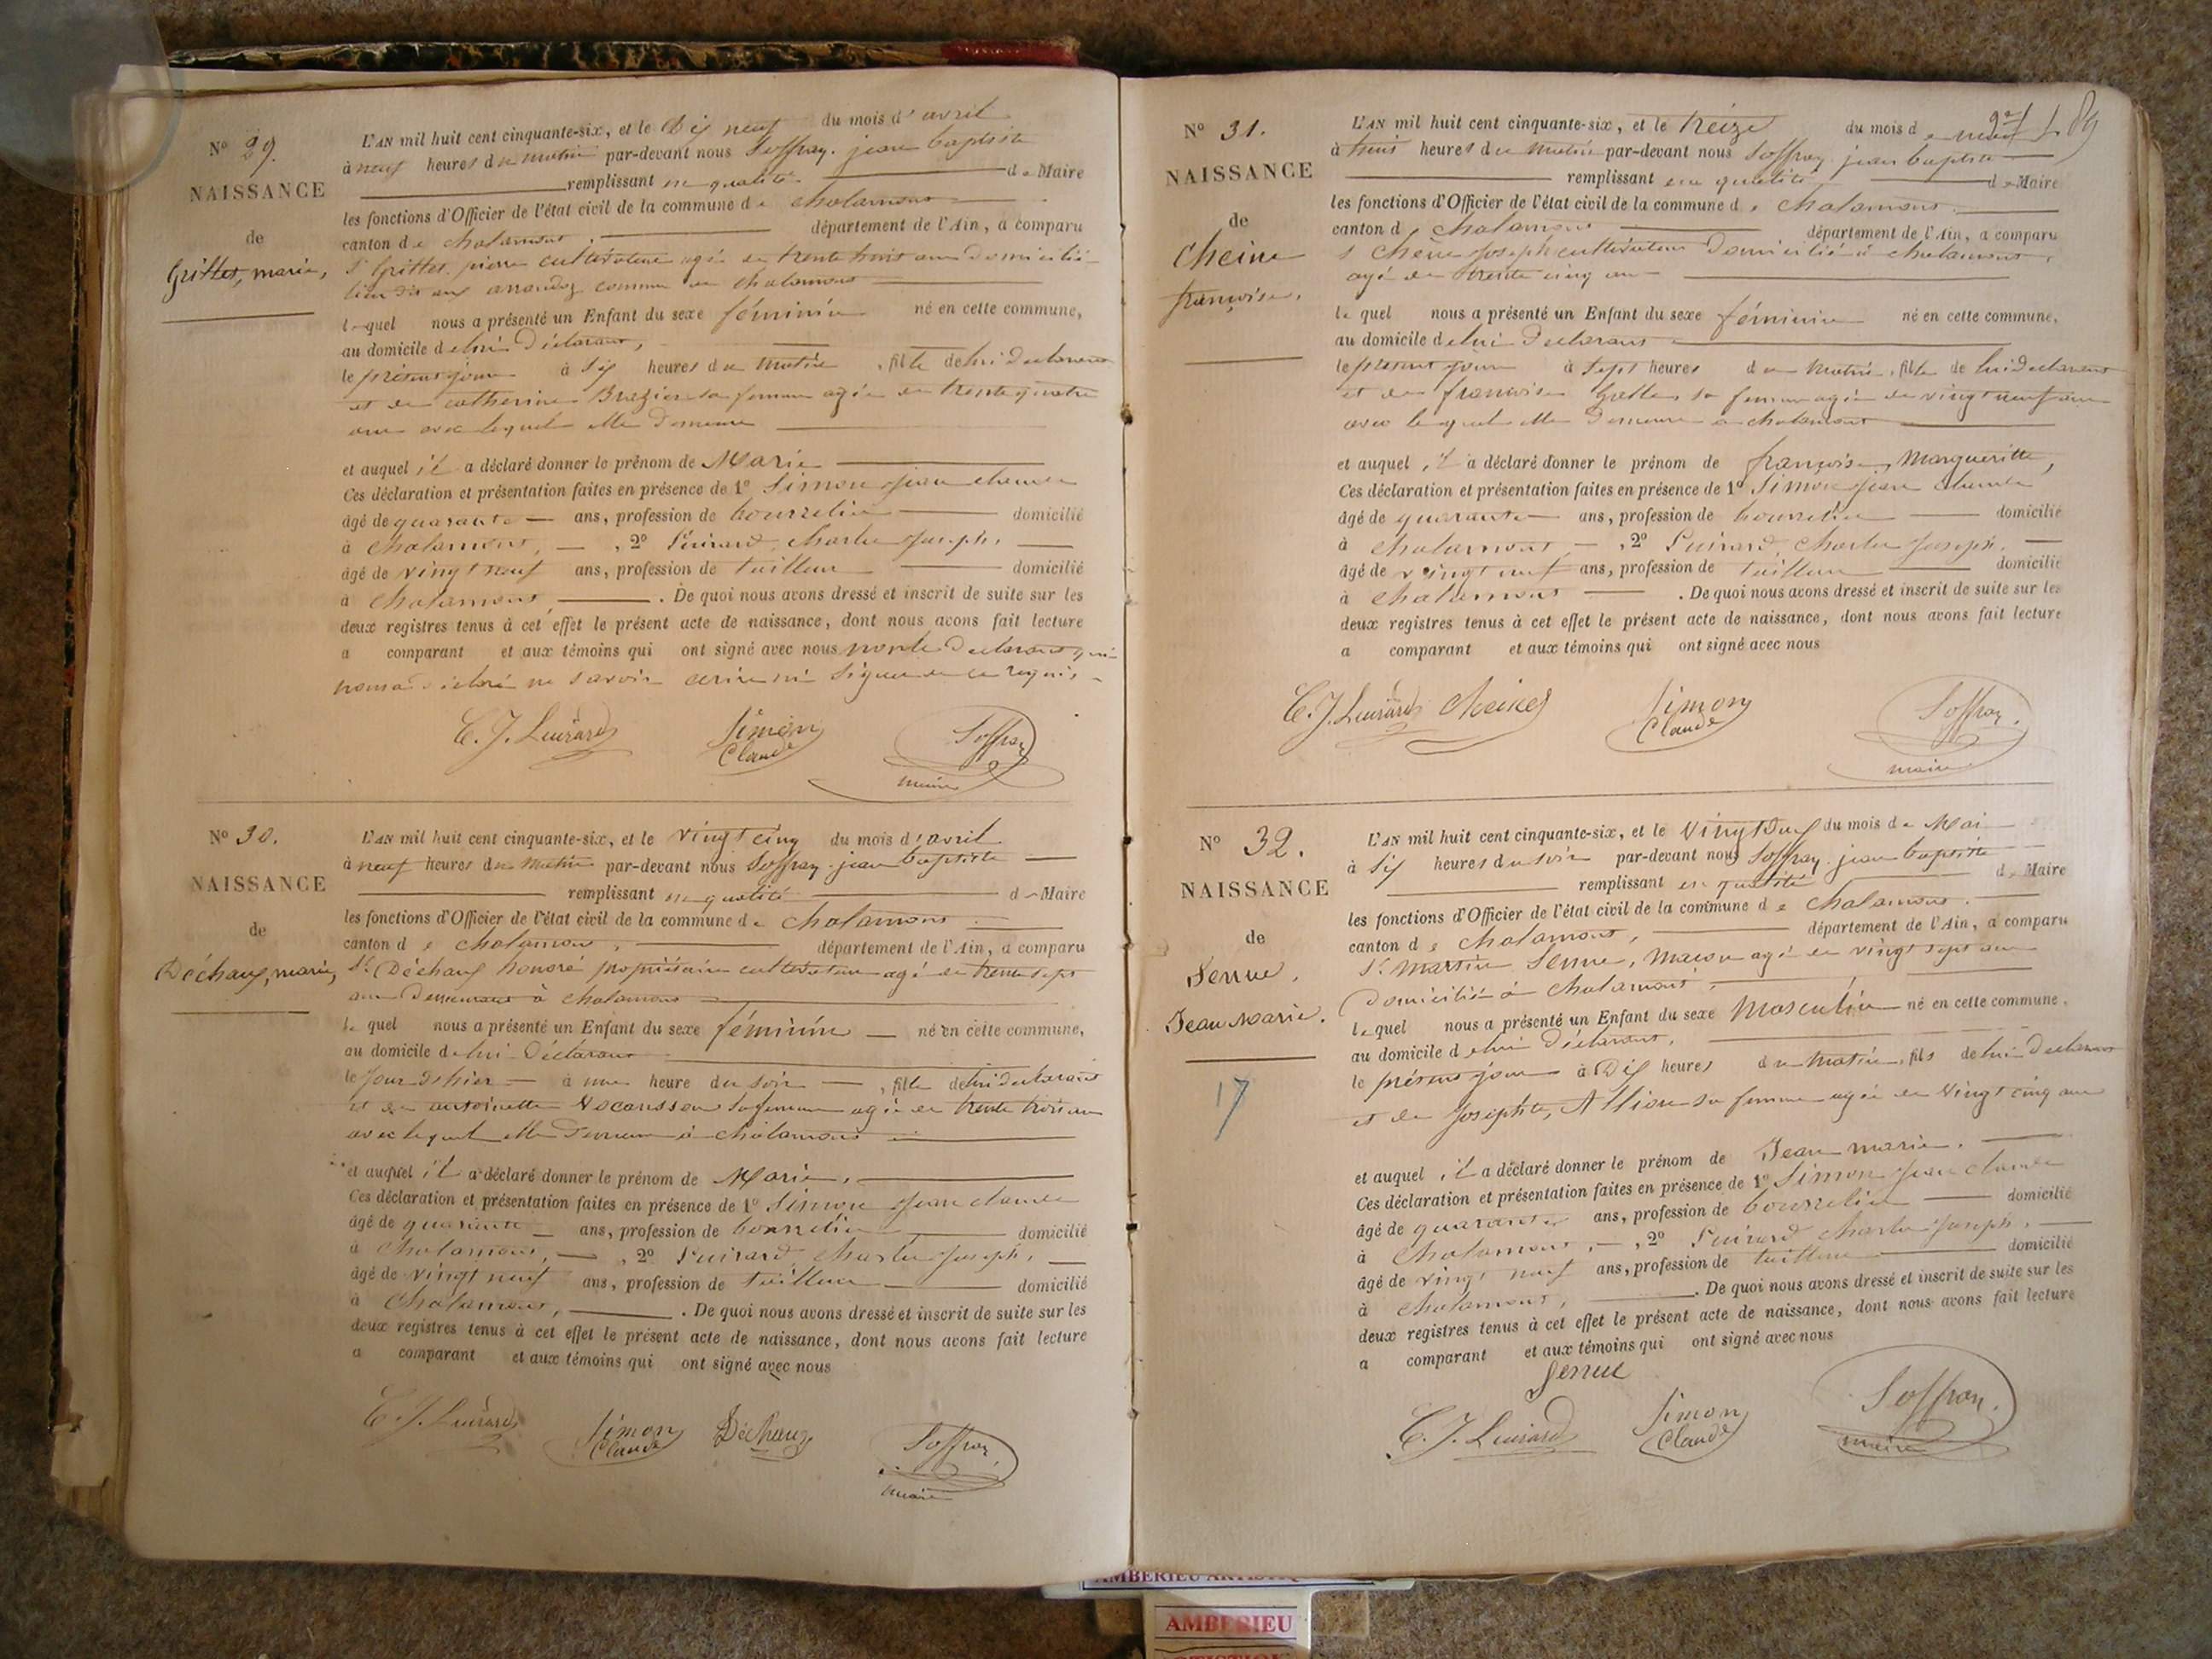 Nº 29.
NAISSANCE
de
Grillet, marie,
L'AN mil huit cent cinquante-six, et le Dix neuf du mois d'avril
à neuf heures du matin par-devant nous Soffray jean baptiste
remplissant en qualité de Maire
les fonctions d'Officier de l'état civil de la commune de chalamont
canton de chalamont, département de l'Ain, a comparu
Sr Grillet pierre cultivateur agé de trente trois ans domicilié
lieu dit aux commune de chalamont
lequel nous a présenté un Enfant du sexe féminin né en cette commune,
au domicile de lui Déclarant,
le présent jour à six heures du matin, fille de lui declarant
et de catherine sa femme agée de trente quatre
ans avec lequel elle Demeure
et auquel il a déclaré donner le prénom de Marie
Ces déclaration et présentation faites en présence de 1º Simon jean claude
âgé de quarante ans, profession de bourrelier domicilié
à chalamont, 2º Luirard, charles joseph,
âgé de vingt neuf ans, profession de tailleur domicilié
à chalamont, . De quoi nous avons dressé et inscrit de suite sur les
deux registres tenus à cet effet le présent acte de naissance, dont nous avons fait lecture
a comparant et aux témoins qui ont signé avec nous non le Declarant qui
nous a déclaré ne savoir écrire ni signer de ce requis
C. J. Luirard Simon Claude Soffray maire
Nº 30.
NAISSANCE
de
Déchaux, marie,
L'AN mil huit cent cinquante-six, et le vingt cinq du mois d'avril
à neuf heures du matin par-devant nous Soffray jean baptiste
remplissant en qualité de Maire
les fonctions d'Officier de l'état civil de la commune de chalamont
canton de chalamont, département de l'Ain, a comparu
Sr Déchaux honoré propriétaire cultivateur agé de trente sept
ans Demeurant à chalamont
lequel nous a présenté un Enfant du sexe féminin né en cette commune,
au domicile de lui Déclarant
le jour d'hier à une heure du soir, fille de lui declarant
et de antoinette sa femme agée de trente trois ans
avec lequel elle Demeure à chalamont
et auquel il a déclaré donner le prénom de Marie,
Ces déclaration et présentation faites en présence de 1º Simon jean claude
âgé de quarante ans, profession de bourrelier domicilié
à chalamont, 2º Luirard, charles joseph,
âgé de vingt neuf ans, profession de tailleur domicilié
à chalamont, . De quoi nous avons dressé et inscrit de suite sur les
deux registres tenus à cet effet le présent acte de naissance, dont nous avons fait lecture
a comparant et aux témoins qui ont signé avec nous
C. J. Luirard Simon Claude Déchaux Soffray maire
89
Nº 31.
NAISSANCE
de
Cheine
françoise.
L'AN mil huit cent cinquante-six, et le treize du mois de
à heures du matin par-devant nous Soffray jean baptiste
remplissant en qualité de Maire
les fonctions d'Officier de l'état civil de la commune de chalamont
canton d chalamont département de l'Ain, a comparu
Joseph cultivateur Domicilié à chalamont,
agé de trente cinq ans
lequel nous a présenté un Enfant du sexe féminin né en cette commune,
au domicile de lui Declarant
le présent jour à sept heures du matin, fille de lui declarant
et de françoise sa femme agée de vingt neuf ans
avec lequel elle Demeure à chalamont
et auquel il a déclaré donner le prénom de françoise, Margueritte,
Ces déclaration et présentation faites en présence de 1º Simon jean claude
âgé de quarante ans, profession de bourrelier domicilié
à chalamont, 2º Luirard, charles joseph.
âgé de vingt neuf ans, profession de tailleur domicilié
à chalamont . De quoi nous avons dressé et inscrit de suite sur les
deux registres tenus à cet effet le présent acte de naissance, dont nous avons fait lecture
a comparant et aux témoins qui ont signé avec nous
C. J. Luirard Simon Claude Soffray maire
Nº 32.
NAISSANCE
de
Serrue,
Jean Marie.
17
L'AN mil huit cent cinquante-six, et le vingt Deux du mois de Mai
à six heures du soir par-devant nous Soffray jean baptiste
remplissant en qualité de Maire
les fonctions d'Officier de l'état civil de la commune de chalamont.
canton de chalamont, département de l'Ain, a comparu
Sr Martin Serrue, Maçon agé de vingt sept ans
Domicilié à chalamont,
lequel nous a présenté un Enfant du sexe Masculin né en cette commune,
au domicile de lui Déclarant,
le présent jour à Dix heures du matin, fils de lui Declarant
et de Josephte, sa femme agée de vingt cinq ans
et auquel il a déclaré donner le prénom de Jean marie.
Ces déclaration et présentation faites en présence de 1º Simon jean claude
âgé de quarante ans, profession de bourrelier domicilié
à chalamont, 2º Luirard charles joseph,
âgé de vingt neuf ans, profession de tailleur domicilié
à chalamont, . De quoi nous avons dressé et inscrit de suite sur les
deux registres tenus à cet effet le présent acte de naissance, dont nous avons fait lecture
a comparant et aux témoins qui ont signé avec nous
Serrue
C. J. Luirard Simon Claude Soffray maire
AMBERIEU